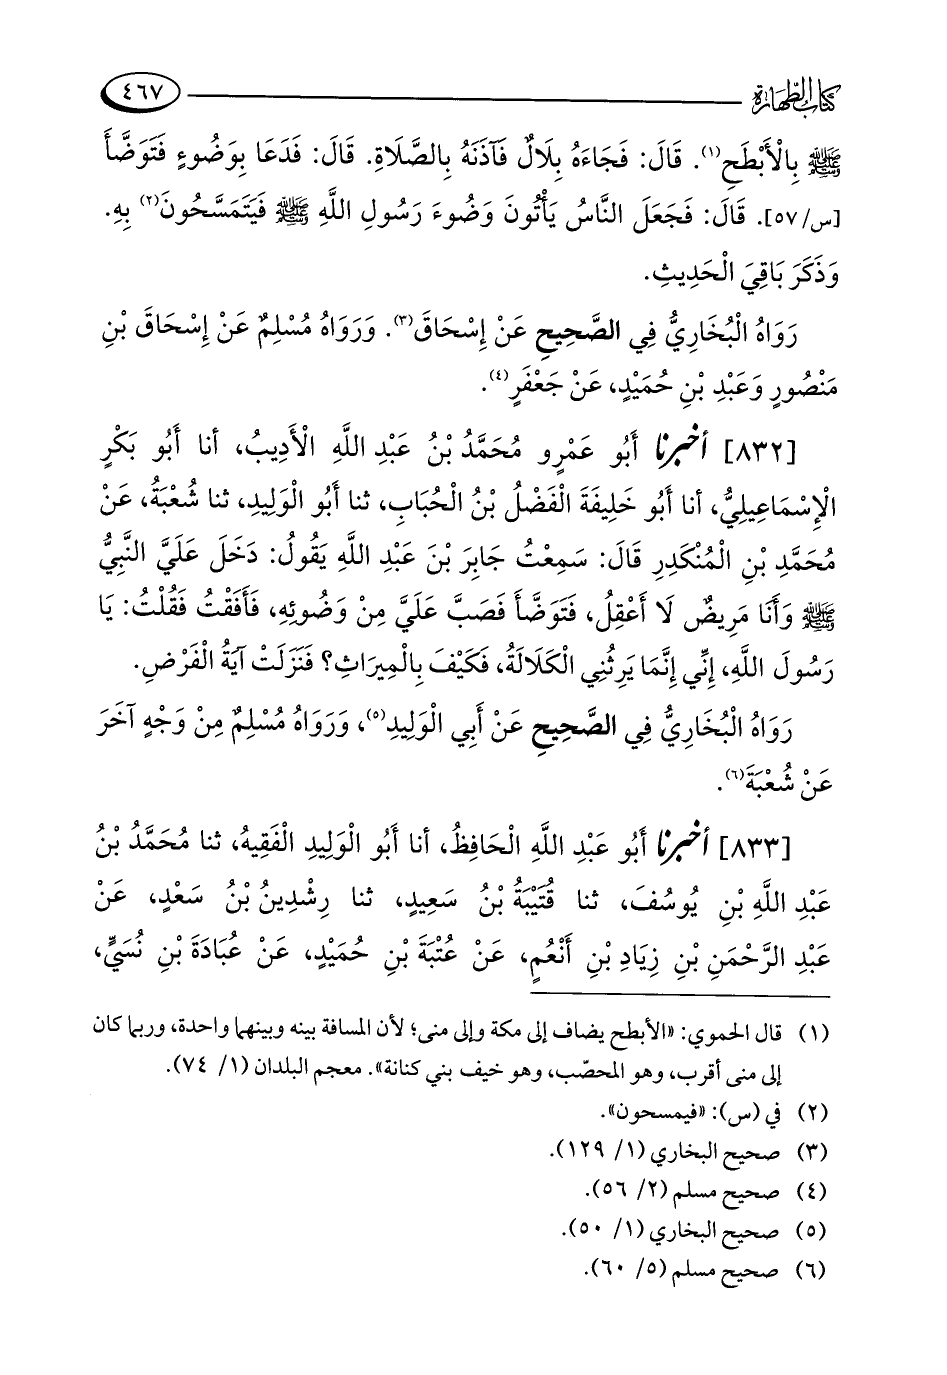 كتاب الطهارة ٤٦٧
ﷺ بِالْأَبْطَحِ(١). قَالَ: فَجَاءَهُ بِلَالٌ فَآذَنَهُ بِالصَّلَاةِ. قَالَ: فَدَعَا بِوَضُوءٍ فَتَوَضَّأَ
[س/٥٧]. قَالَ: فَجَعَلَ النَّاسُ يَأْتُونَ وَضُوءَ رَسُولِ اللَّهِ ﷺ فَيَتَمَسَّحُونَ(٢) بِهِ.
وَذَكَرَ بَاقِيَ الْحَدِيثِ.
رَوَاهُ الْبُخَارِيُّ فِي الصَّحِيحِ عَنْ إِسْحَاقَ(٣). وَرَوَاهُ مُسْلِمٌ عَنْ إِسْحَاقَ بْنِ
مَنْصُورٍ وَعَبْدِ بْنِ حُمَيْدٍ، عَنْ جَعْفَرٍ(٤).
[٨٣٢] أخبرنا أَبُو عَمْرٍو مُحَمَّدُ بْنُ عَبْدِ اللَّهِ الْأَدِيبُ، أنا أَبُو بَكْرٍ
الْإِسْمَاعِيلِيُّ، أنا أَبُو خَلِيفَةَ الْفَضْلُ بْنُ الْحُبَابِ، ثنا أَبُو الْوَلِيدِ، ثنا شُعْبَةُ، عَنْ
مُحَمَّدِ بْنِ الْمُنْكَدِرِ قَالَ: سَمِعْتُ جَابِرَ بْنَ عَبْدِ اللَّهِ يَقُولُ: دَخَلَ عَلَيَّ النَّبِيُّ
ﷺ وَأَنَا مَرِيضٌ لَا أَعْقِلُ، فَتَوَضَّأَ فَصَبَّ عَلَيَّ مِنْ وَضُوئِهِ، فَأَفَقْتُ فَقُلْتُ: يَا
رَسُولَ اللَّهِ، إِنِّي إِنَّمَا يَرِثُنِي الْكَلَالَةُ، فَكَيْفَ بِالْمِيرَاثِ؟ فَنَزَلَتْ آيَةُ الْفَرْضِ.
رَوَاهُ الْبُخَارِيُّ فِي الصَّحِيحِ عَنْ أَبِي الْوَلِيدِ(٥)، وَرَوَاهُ مُسْلِمٌ مِنْ وَجْهٍ آخَرَ
عَنْ شُعْبَةَ(٦).
[٨٣٣] أخبرنا أَبُو عَبْدِ اللَّهِ الْحَافِظُ، أنا أَبُو الْوَلِيدِ الْفَقِيهُ، ثنا مُحَمَّدُ بْنُ
عَبْدِ اللَّهِ بْنِ يُوسُفَ، ثنا قُتَيْبَةُ بْنُ سَعِيدٍ، ثنا رِشْدِينُ بْنُ سَعْدٍ، عَنْ
عَبْدِ الرَّحْمَنِ بْنِ زِيَادِ بْنِ أَنْعُمٍ، عَنْ عُتْبَةَ بْنِ حُمَيْدٍ، عَنْ عُبَادَةَ بْنِ نُسَيٍّ،
(١) قال الحموي: «الأبطح يضاف إلى مكة وإلى منى؛ لأن المسافة بينه وبينهما واحدة، وربما كان
إلى منى أقرب، وهو المحصّب، وهو خيف بني كنانة». معجم البلدان (١/ ٧٤).
(٢) في (س): «فيمسحون».
(٣) صحيح البخاري (١/ ١٢٩).
(٤) صحيح مسلم (٢/ ٥٦).
(٥) صحيح البخاري (١/ ٥٠).
(٦) صحيح مسلم (٥/ ٦٠).